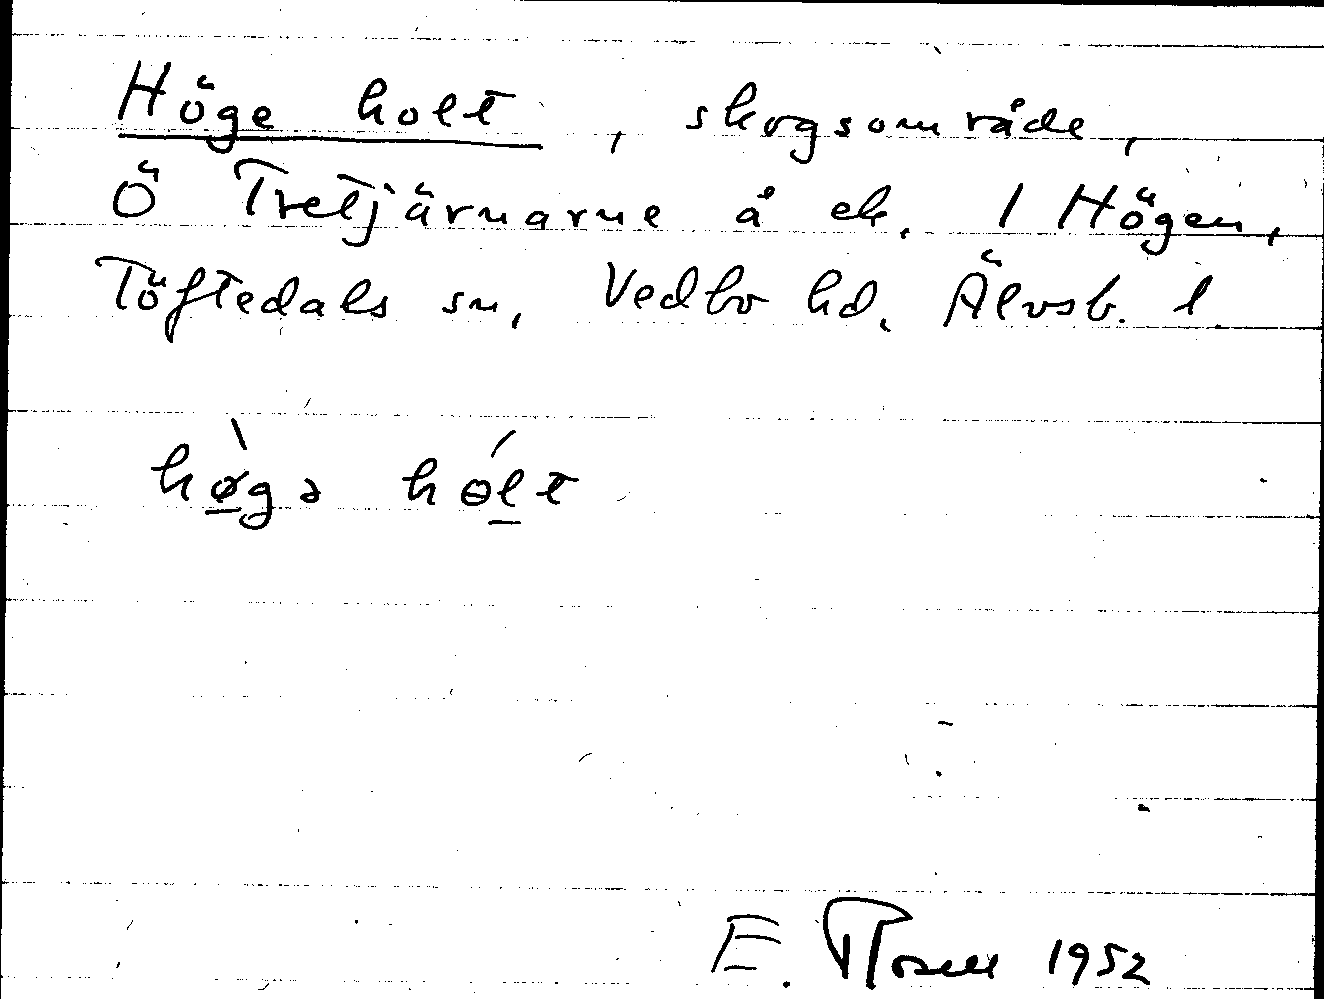 Höge holt, skogsområde,
Ö Tretjärnarne å ek. 1 Högen,
Töftedals sn, Vedbo hd. Älvsb. l
hø̀gə hólt
E. Rosell 1952